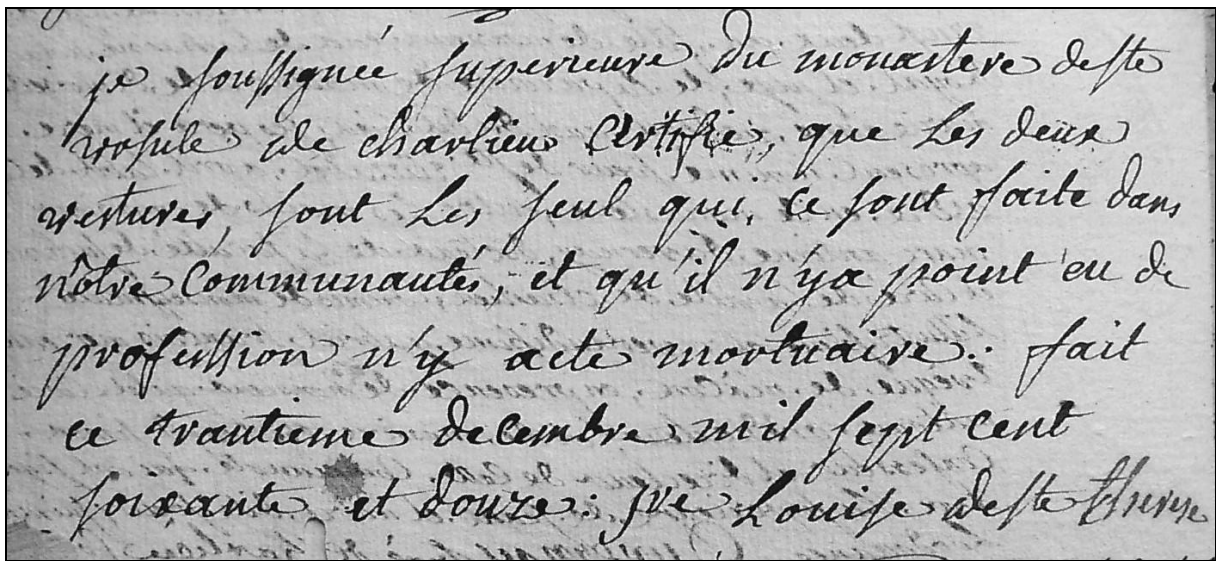 je soussignée superieure du monastere de ste
ursule de charlieu certifie, que Les deux
vestures, sont Les seul qui, ce sont faite dans
nôtre communautés, et qu'il n'ya point eu de
profession n'y acte mortuaire: fait
ce trantieme decembre mil sept cent
soixante et douze: sr Louise de ste therese